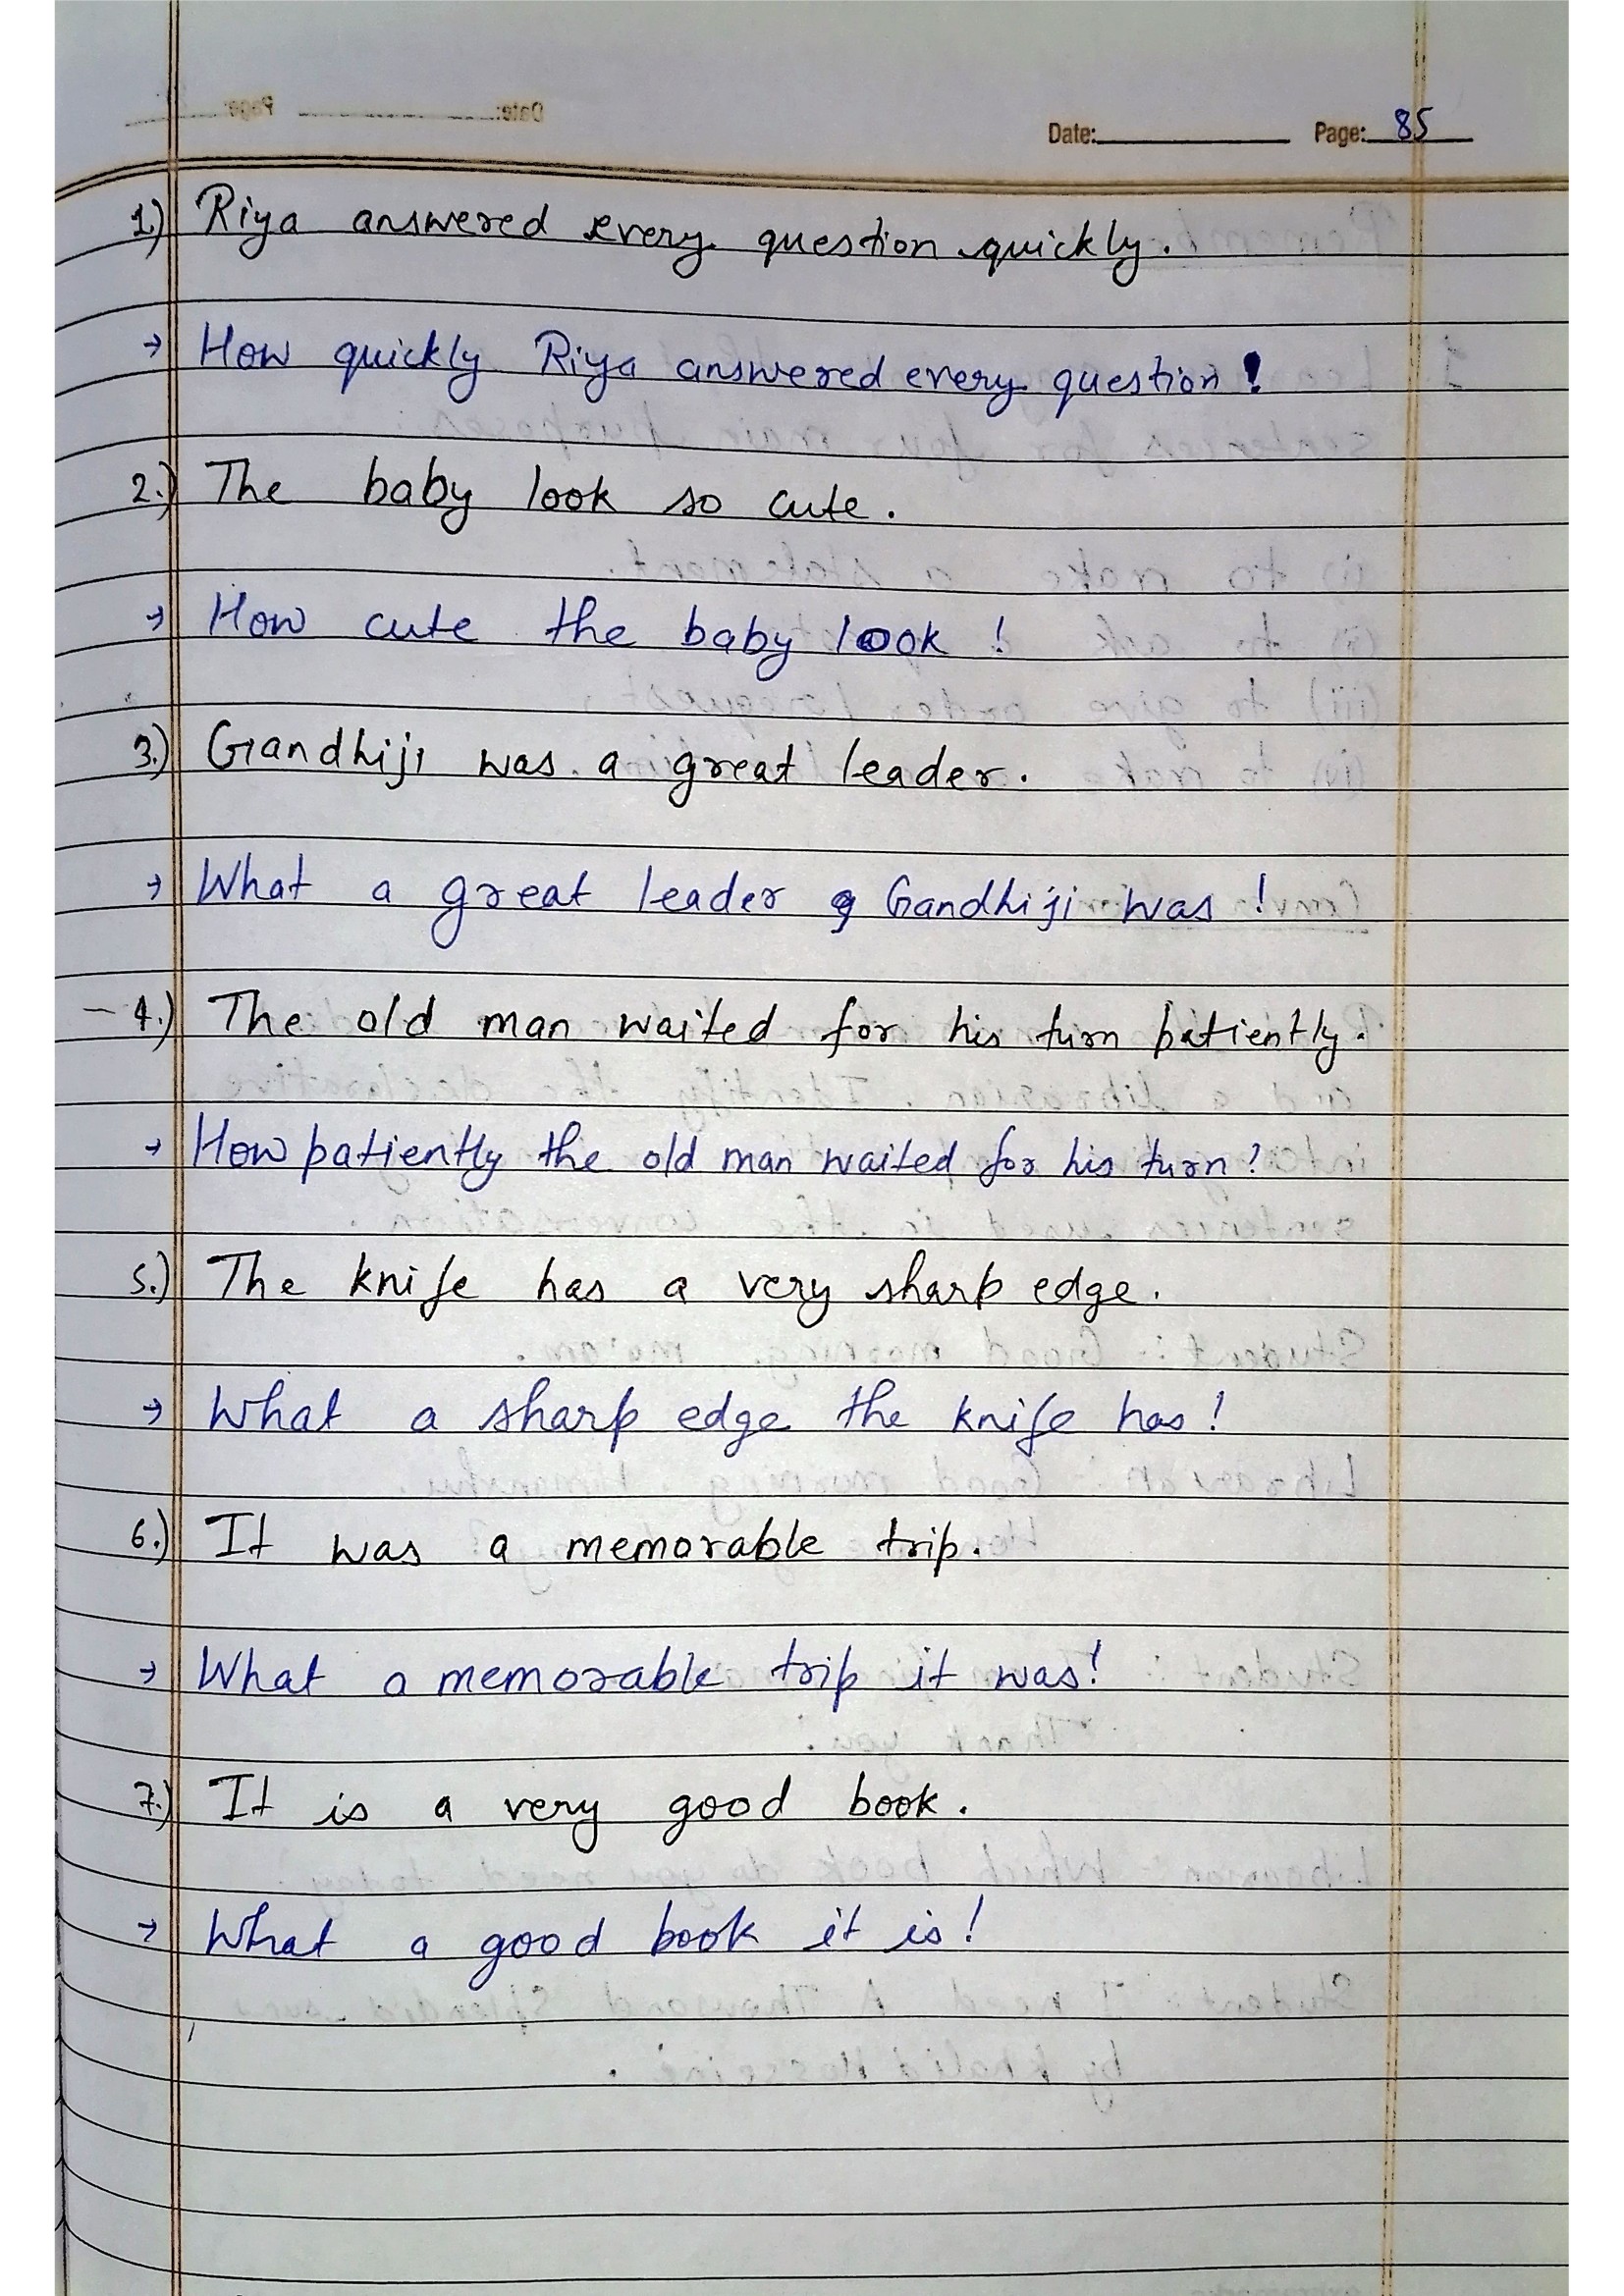 Date: Page: 85
1.) Riya answered every question quickly.
→ How quickly Riya answered every question!
2.) The baby look so cute.
→ How cute the baby look!
3.) Gandhiji was a great leader.
→ What a great leader Gandhiji was!
4.) The old man waited for his turn patiently.
→ How patiently the old man waited for his turn?
5.) The knife has a very sharp edge.
→ What a sharp edge the knife has!
6.) It was a memorable trip.
→ What a memorable trip it was!
7.) It is a very good book.
→ What a good book it is!